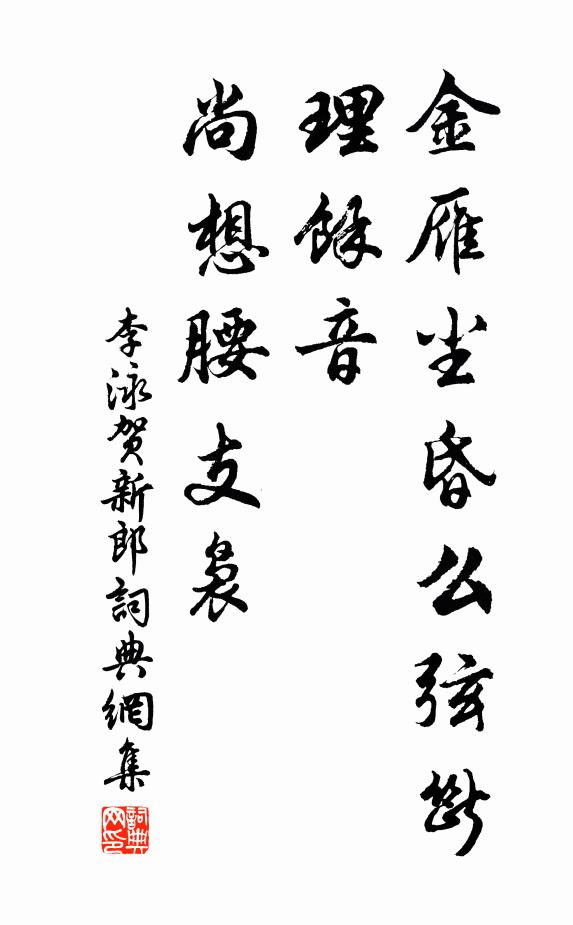 金雁尘昏么弦斷
理餘音
尚想腰支裊
李泳贺新郎詞典網集
詞典网印